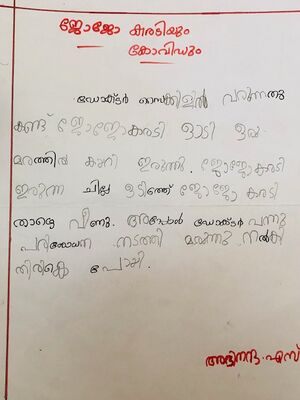 ജോജോ കരടിയും
കോവിഡും
ഡോക്ടർ സൈക്കിളിൽ വരുന്നതു
കണ്ട് ജോജോകരടി ഓടി ഒരു
മരത്തിൽ കയറി ഇരുന്നു. ജോജോകരടി
ഇരുന്ന ചില്ല ഒടിഞ്ഞ് ജോജോ കരടി
താഴെ വീണു. അപ്പോൾ ഡോക്ടർ വന്നു
പരിശോധന നടത്തി മരുന്നു നൽകി
തിരികെ പോയി.
അഭിനന്ദ. എസ്